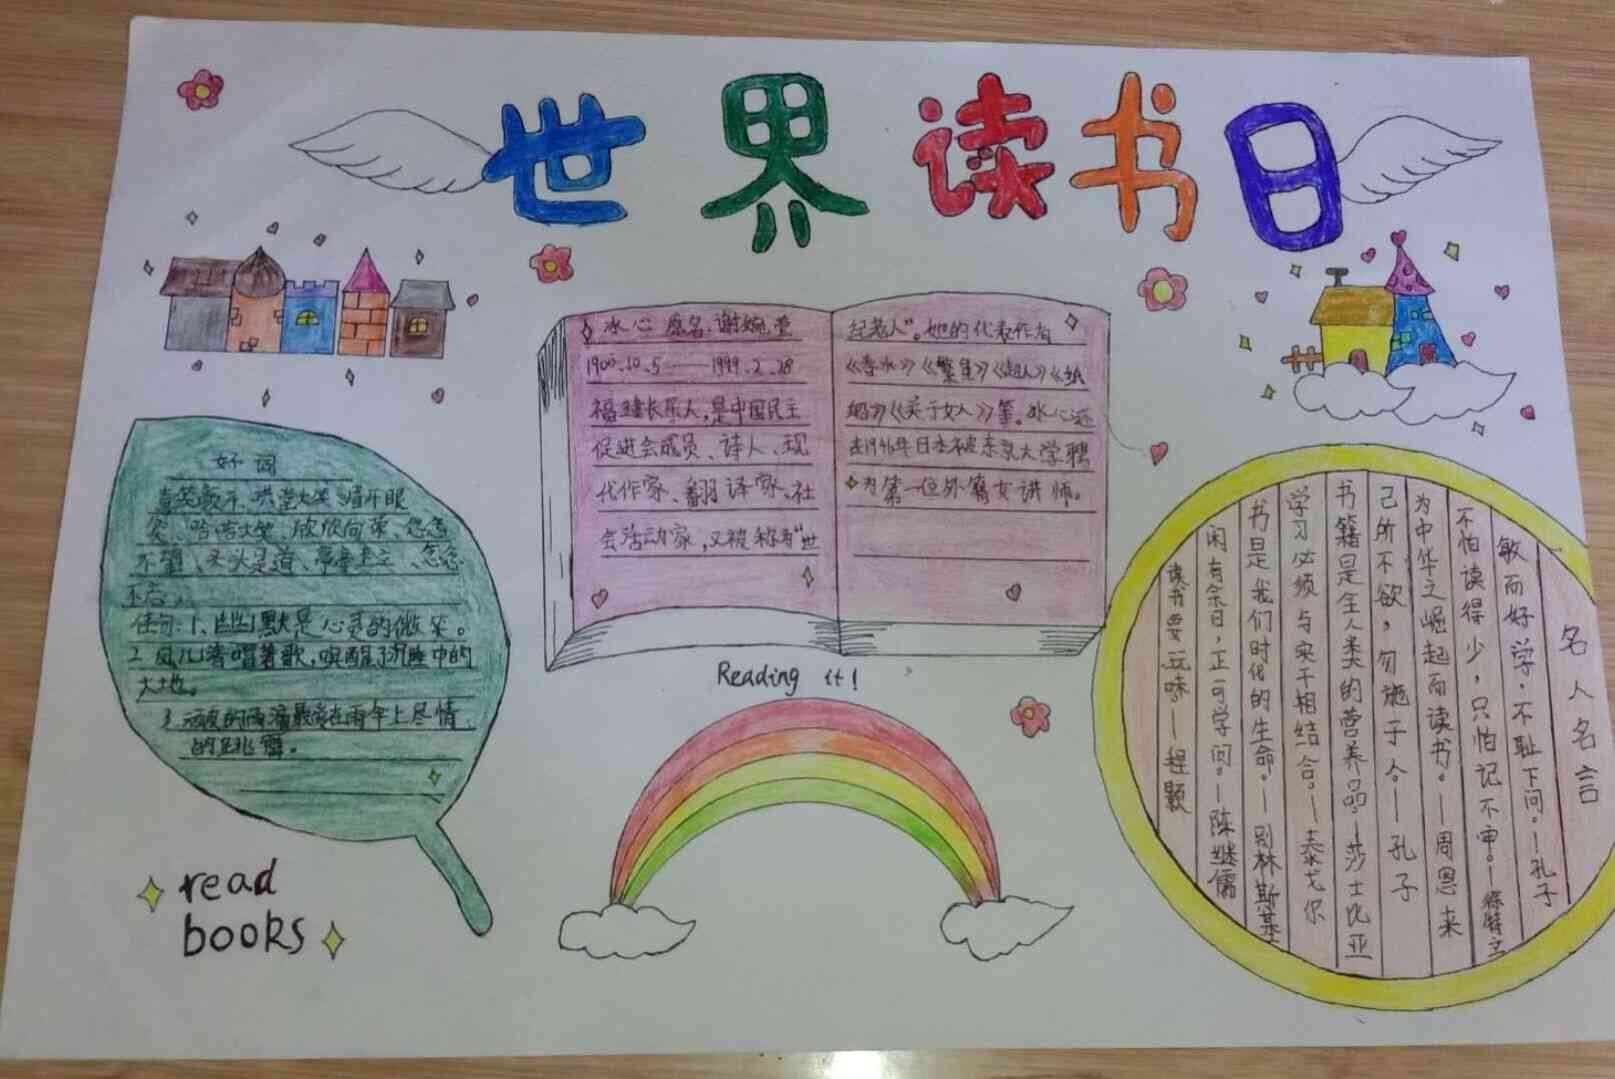 世界读书日
冰心 原名:谢婉莹
1900.10.5——1999.2.28
福建长乐人,是中国民主
促进会成员、诗人、现
代作家、翻译家、社
会活动家,又被称为“世
纪老人”。她的代表作有
《春水》《繁星》《超人》《纸
船》《关于女人》等。冰心还
在1946年日本被东京大学聘
为第一位外籍女讲师。
好词
喜笑颜开、哄堂大笑、眉开眼
笑、哈哈大笑、欣欣向荣、
不
不忘。
佳句:1、幽默是心灵的微笑。
2.风儿清唱着歌,唤醒了沉睡中的
大地。
3.顽皮的雨滴最爱在雨伞上尽情
的跳舞。
read
books
Reading it!
名人名言
敏而好学,不耻下问。—孔子
不怕读得少,只怕记不牢。—徐特立
为中华之崛起而读书。—周恩来
己所不欲,勿施于人—孔子
书籍是全人类的营养品。—莎士比亚
学习必须与实干相结合。—泰戈尔
书是我们时代的生命。—别林斯基
闲有余日,正可学问。—陈继儒
读书要玩味—程颢